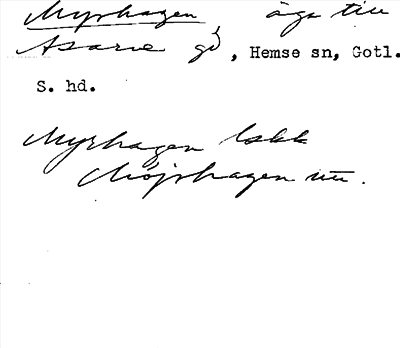 Myrhagen, äga till
Asarve gd, Hemse sn, Gotl.
S. hd.
Myrhagen lskk
Möjrhagen utt.